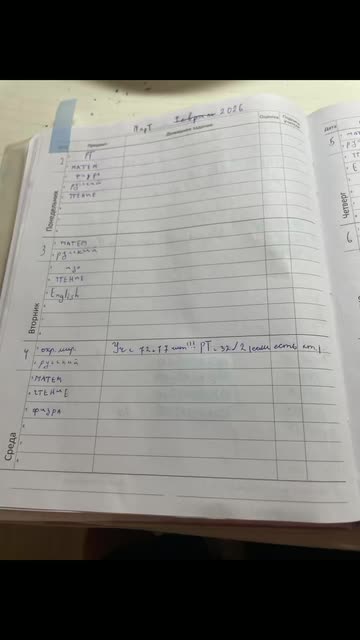 Март Февраль 2026
Предмет Домашнее задание Оценка Подпись
Понедельник
2
РТ
матем
физра
русский
чтение
Вторник
3
матем
русский
муз
чтение
English
Среда
4
окр. мир. Уч с 72-77 РТ с 32 √2 (если есть
русский
матем
чтение
физра
Дата
5
Четверг
6